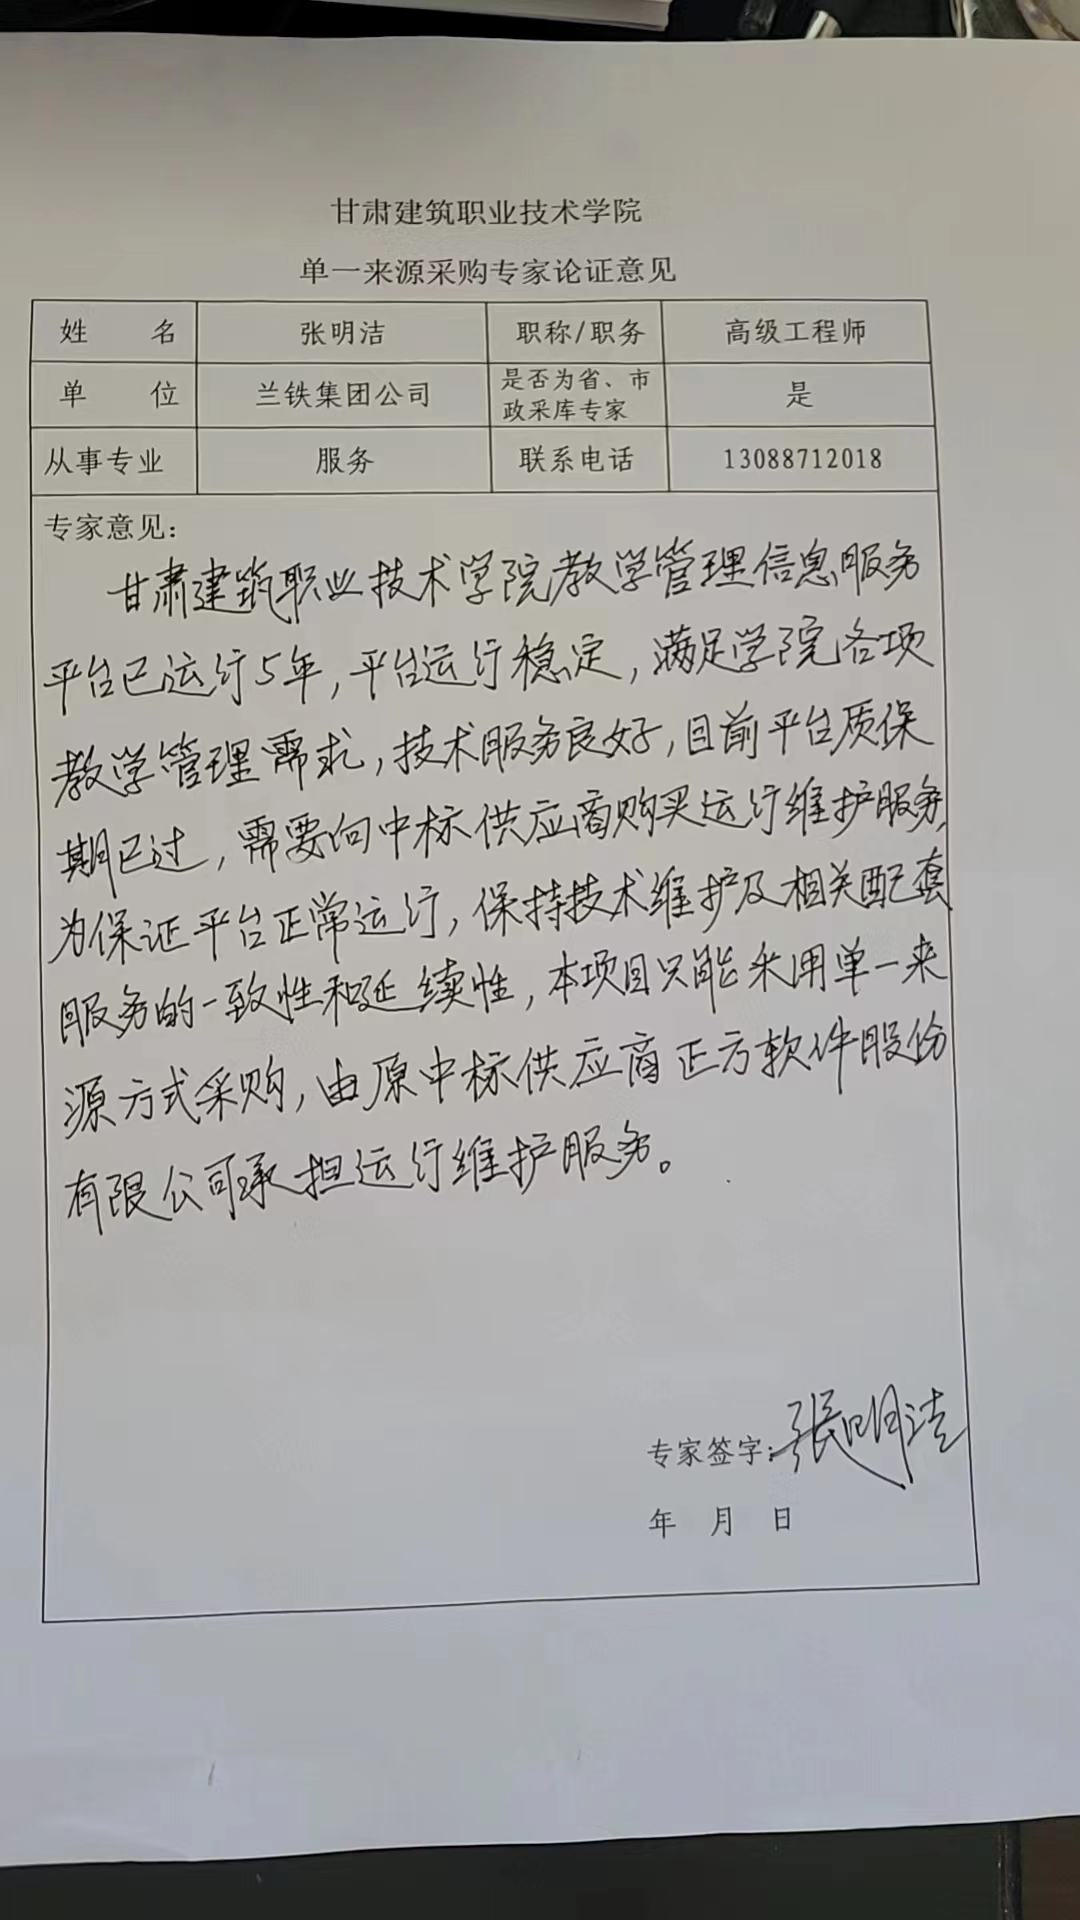 甘肃建筑职业技术学院
单一来源采购专家论证意见
姓 名 张明洁 职称/职务 高级工程师
单 位 兰铁集团公司 是否为省、市政采库专家 是
从事专业 服务 联系电话 13088712018
专家意见:
甘肃建筑职业技术学院教学管理信息服务
平台已运行5年,平台运行稳定,满足学院各项
教学管理需求,技术服务良好,目前平台质保
期已过,需要向中标供应商购买运行维护服务,
为保证平台正常运行,保持技术维护及相关配套
服务的一致性和延续性,本项目只能采用单一来
源方式采购,由原中标供应商正方软件股份
有限公司承担运行维护服务。
专家签字:张明洁
年 月 日